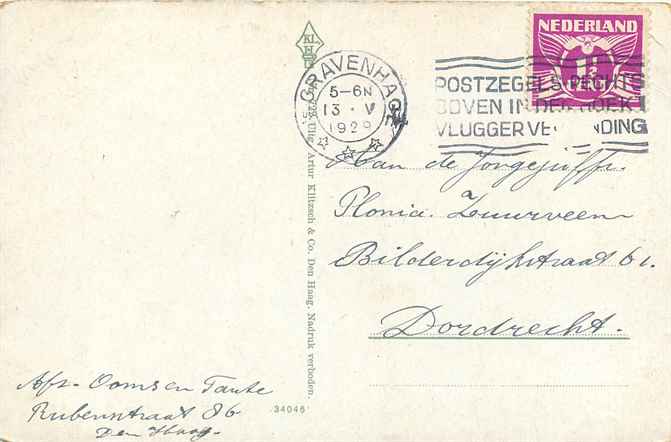 NEDERLAND
1½
'S GRAVENHAGE
5-6N
13 · V
1929
POSTZEGELS RECHTS
BOVEN IN DEN HOEK
VLUGGER VE NDING
KL
H
Uitg. Artur Klitzsch & Co. Den Haag. Nadruk verboden.
34046
Aan de Jongejuffr.
Plonia. Zuurveen
Bilderdijkstraat 61.
Dordrecht.
Afz- Ooms en Tante
Rubenstraat 86
Den Haag.